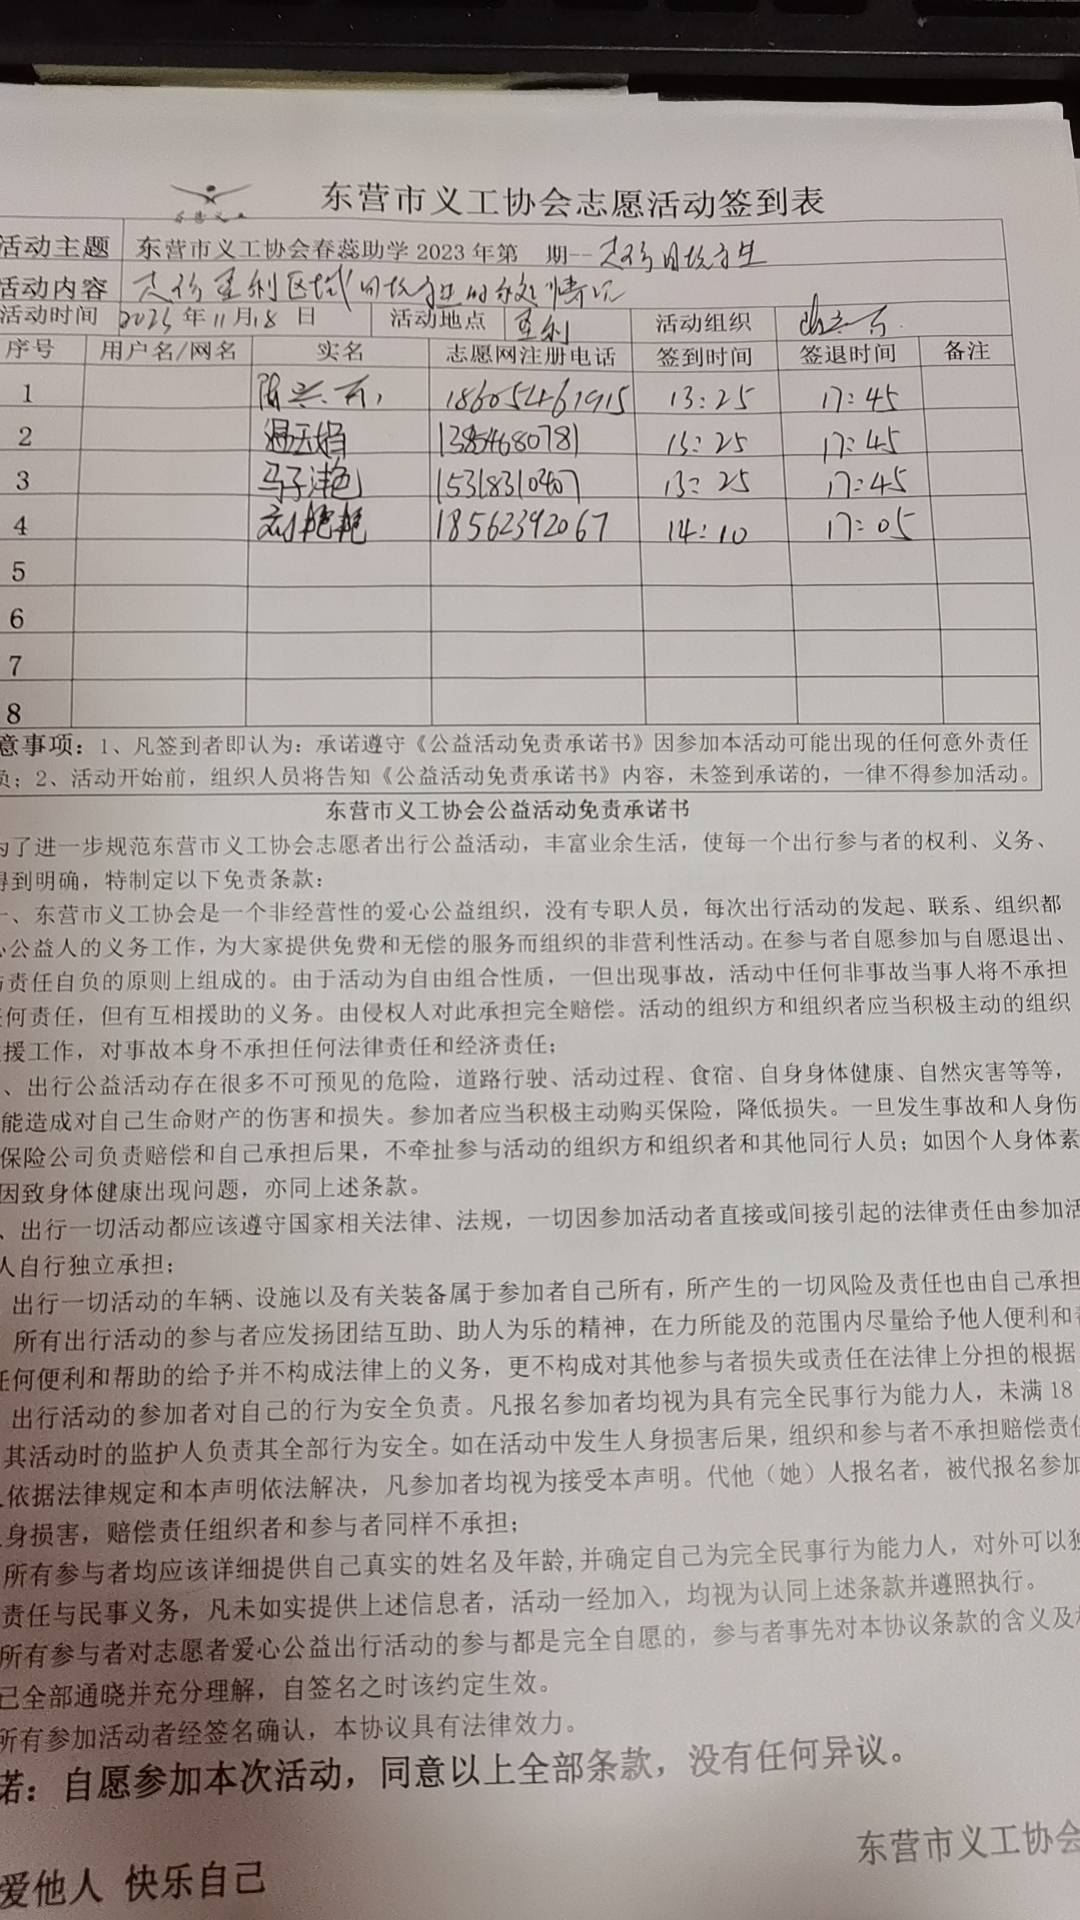 东营义工
东营市义工协会志愿活动签到表
活动主题 东营市义工协会春蕊助学 2023 年第 期--走访
活动内容 走访垦利区域 情况
活动时间 2023 年 11 月 18 日 活动地点 垦利 活动组织
序号 用户名/网名 实名 志愿网注册电话 签到时间 签退时间 备注
1 18605461915 13:25 17:45
2 13854680781 13:25 17:45
3 马子沣 15318310407 13:25 17:45
4 刘艳艳 18562392067 14:10 17:05
5
6
7
8
意事项：1、凡签到者即认为：承诺遵守《公益活动免责承诺书》因参加本活动可能出现的任何意外责任
负；2、活动开始前，组织人员将告知《公益活动免责承诺书》内容，未签到承诺的，一律不得参加活动。
东营市义工协会公益活动免责承诺书
为了进一步规范东营市义工协会志愿者出行公益活动，丰富业余生活，使每一个出行参与者的权利、义务、
得到明确，特制定以下免责条款：
一、东营市义工协会是一个非经营性的爱心公益组织，没有专职人员，每次出行活动的发起、联系、组织都
心公益人的义务工作，为大家提供免费和无偿的服务而组织的非营利性活动。在参与者自愿参加与自愿退出、
责任自负的原则上组成的。由于活动为自由组合性质，一但出现事故，活动中任何非事故当事人将不承担
任何责任，但有互相援助的义务。由侵权人对此承担完全赔偿。活动的组织方和组织者应当积极主动的组织
援工作，对事故本身不承担任何法律责任和经济责任；
、出行公益活动存在很多不可预见的危险，道路行驶、活动过程、食宿、自身身体健康、自然灾害等等，
能造成对自己生命财产的伤害和损失。参加者应当积极主动购买保险，降低损失。一旦发生事故和人身伤
保险公司负责赔偿和自己承担后果，不牵扯参与活动的组织方和组织者和其他同行人员；如因个人身体素
因致身体健康出现问题，亦同上述条款。
、出行一切活动都应该遵守国家相关法律、法规，一切因参加活动者直接或间接引起的法律责任由参加活
人自行独立承担；
出行一切活动的车辆、设施以及有关装备属于参加者自己所有，所产生的一切风险及责任也由自己承担
所有出行活动的参与者应发扬团结互助、助人为乐的精神，在力所能及的范围内尽量给予他人便利和
任何便利和帮助的给予并不构成法律上的义务，更不构成对其他参与者损失或责任在法律上分担的根据
出行活动的参加者对自己的行为安全负责。凡报名参加者均视为具有完全民事行为能力人，未满 18
其活动时的监护人负责其全部行为安全。如在活动中发生人身损害后果，组织和参与者不承担赔偿责任
人依据法律规定和本声明依法解决，凡参加者均视为接受本声明。代他（她）人报名者，被代报名参加
身损害，赔偿责任组织者和参与者同样不承担；
所有参与者均应该详细提供自己真实的姓名及年龄，并确定自己为完全民事行为能力人，对外可以独
责任与民事义务，凡未如实提供上述信息者，活动一经加入，均视为认同上述条款并遵照执行。
所有参与者对志愿者爱心公益出行活动的参与都是完全自愿的，参与者事先对本协议条款的含义及
已全部通晓并充分理解，自签名之时该约定生效。
所有参加活动者经签名确认，本协议具有法律效力。
诺：自愿参加本次活动，同意以上全部条款，没有任何异议。
东营市义工协会
爱他人 快乐自己